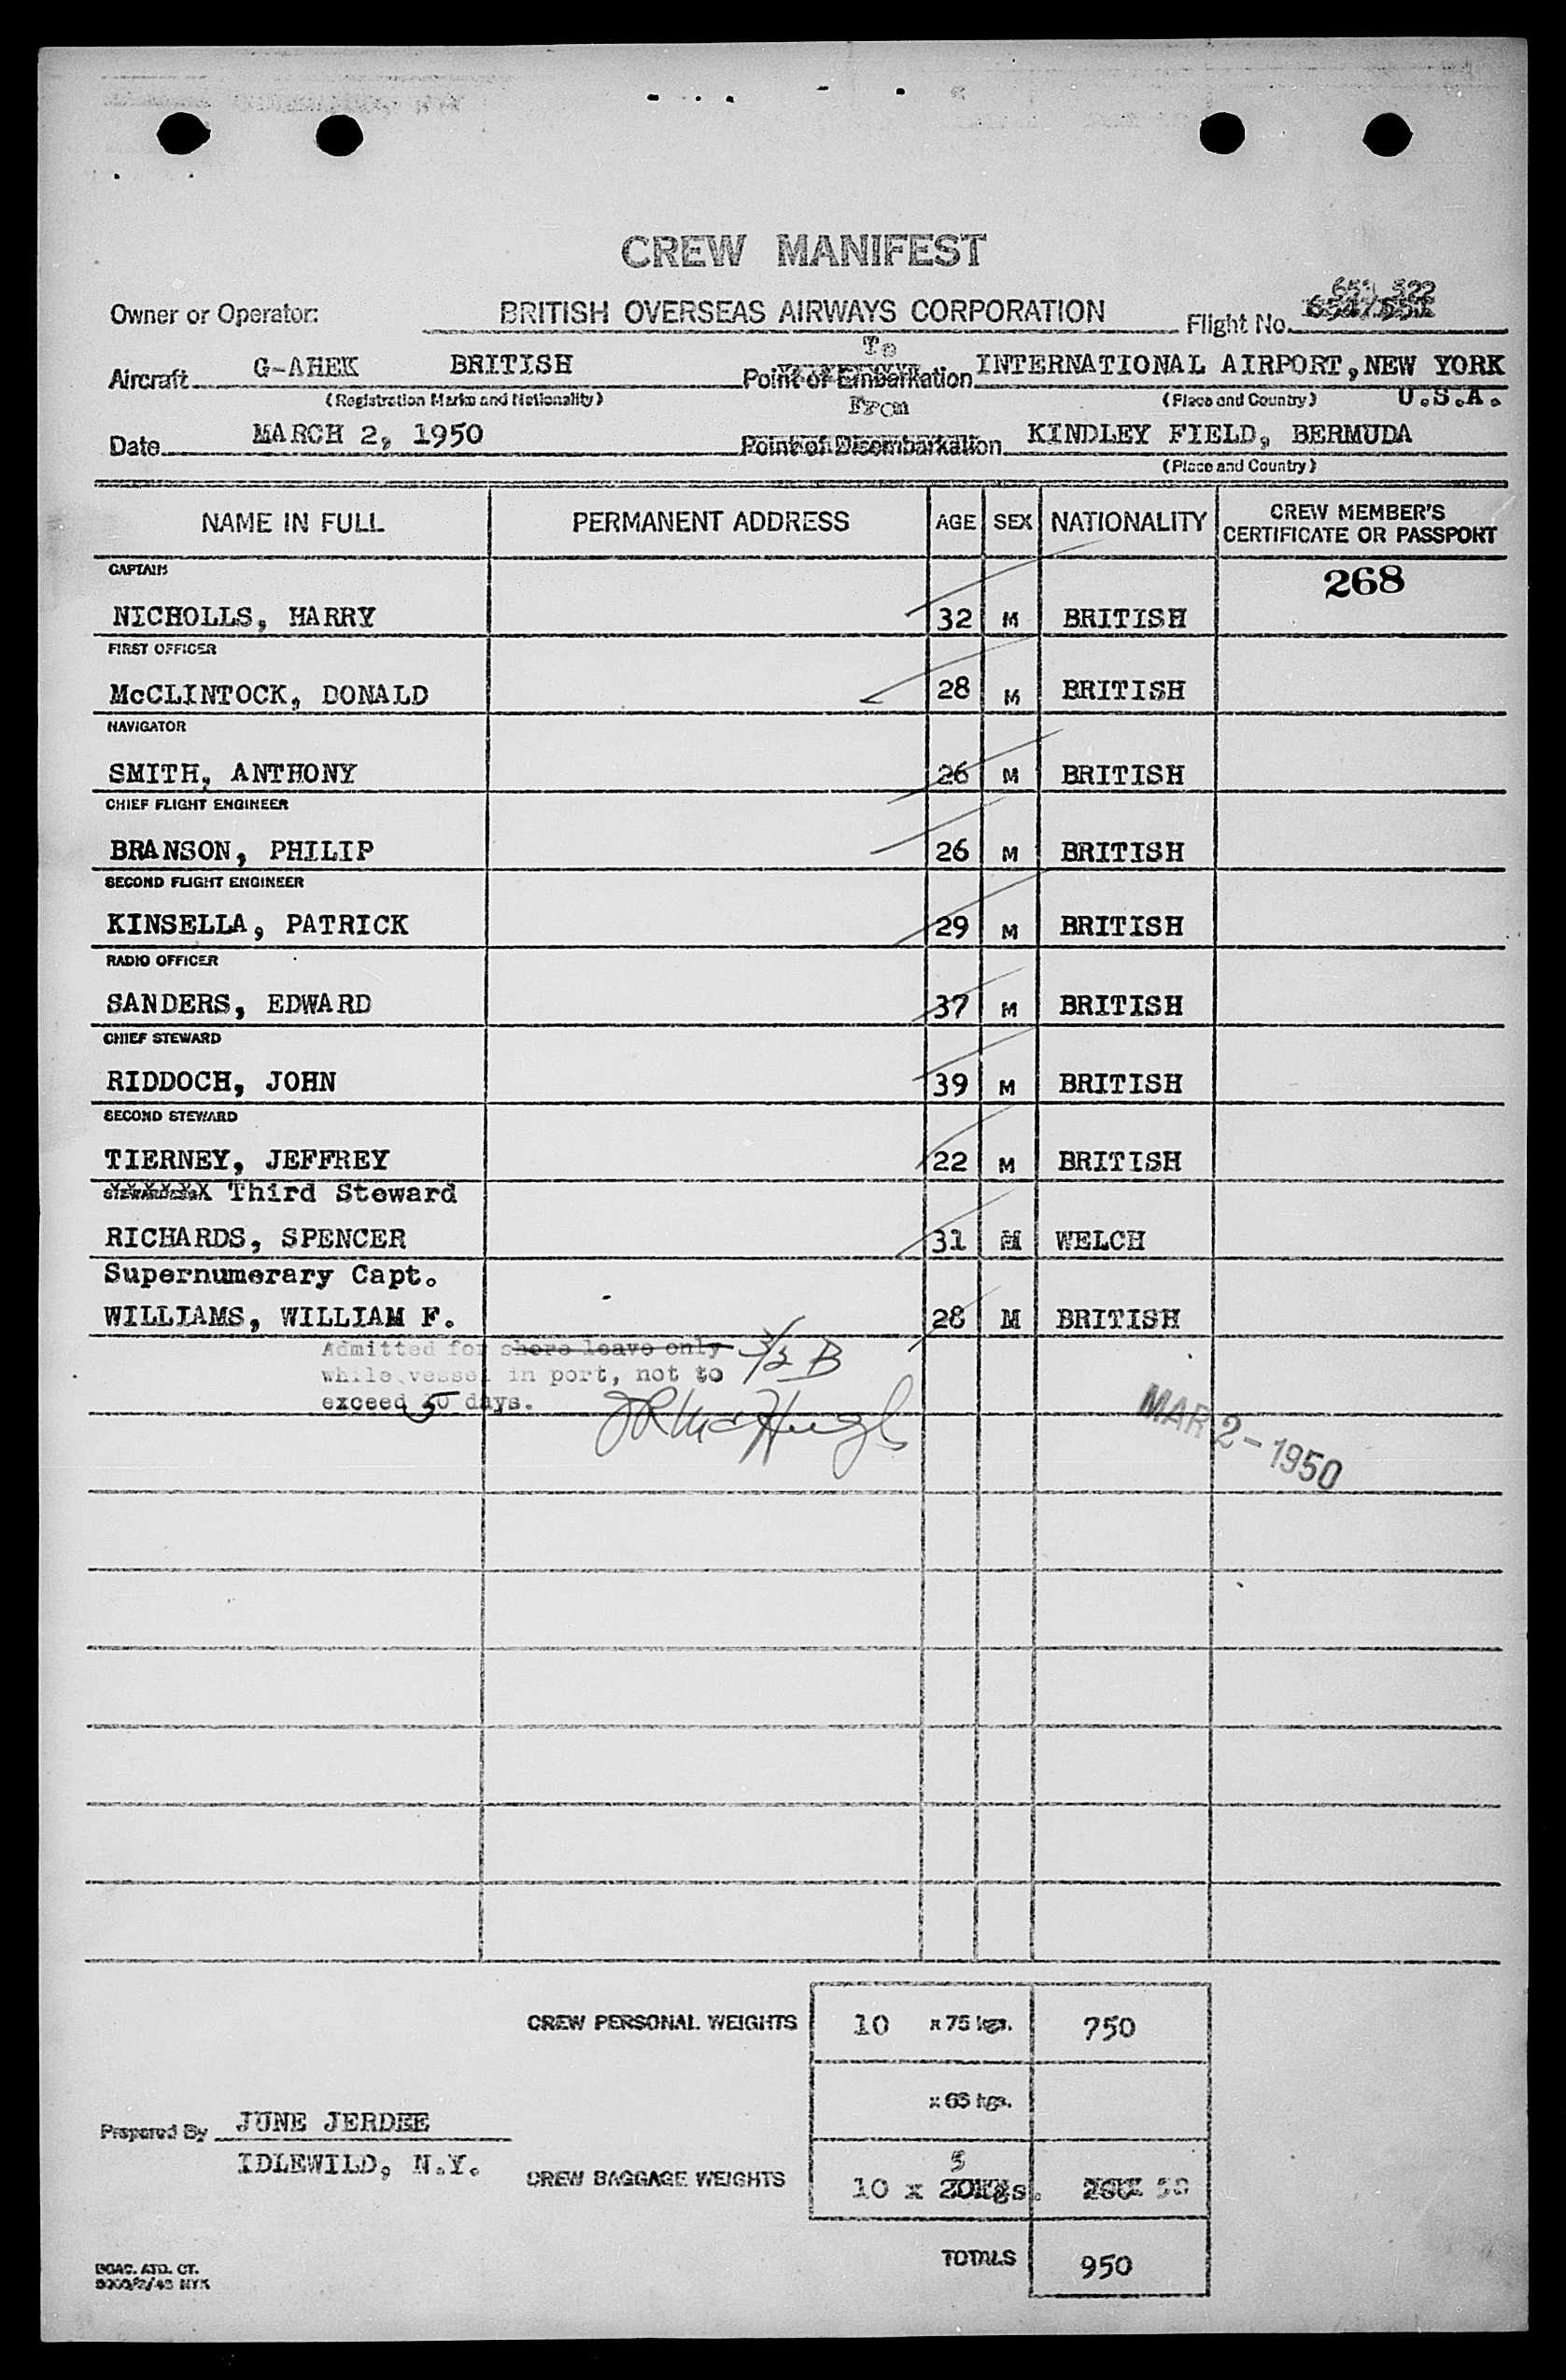 CREW MANIFEST
Owner or Operator: BRITISH OVERSEAS AIRWAYS CORPORATION Flight No. 522
Aircraft G-AHEK BRITISH To Point of Embarkation INTERNATIONAL AIRPORT, NEW YORK
(Registration Marks and Nationality) (Place and Country) U.S.A.
From
Date MARCH 2, 1950 Point of Disembarkation KINDLEY FIELD, BERMUDA
(Place and Country)
NAME IN FULL PERMANENT ADDRESS AGE SEX NATIONALITY CREW MEMBER'S CERTIFICATE OR PASSPORT
CAPTAIN 268
NICHOLLS, HARRY 32 M BRITISH
FIRST OFFICER
McCLINTOCK, DONALD 28 M BRITISH
NAVIGATOR
SMITH, ANTHONY 26 M BRITISH
CHIEF FLIGHT ENGINEER
BRANSON, PHILIP 26 M BRITISH
SECOND FLIGHT ENGINEER
KINSELLA, PATRICK 29 M BRITISH
RADIO OFFICER
SANDERS, EDWARD 37 M BRITISH
CHIEF STEWARD
RIDDOCH, JOHN 39 M BRITISH
SECOND STEWARD
TIERNEY, JEFFREY 22 M BRITISH
Third Steward
RICHARDS, SPENCER 31 M WELCH
Supernumerary Capt.
WILLIAMS, WILLIAM F. 28 M BRITISH
Admitted for shore leave only 3/2 B
while vessel in port, not to
exceed 5 days.
MAR 2-1950
CREW PERSONAL WEIGHTS 10 x 75 kgs. 750
x 65 kgs.
Prepared By JUNE JERDEE
IDLEWILD, N.Y.
5
CREW BAGGAGE WEIGHTS 10 x 20Kgs. 200 50
TOTALS 950
BOAC. ATD. CT.